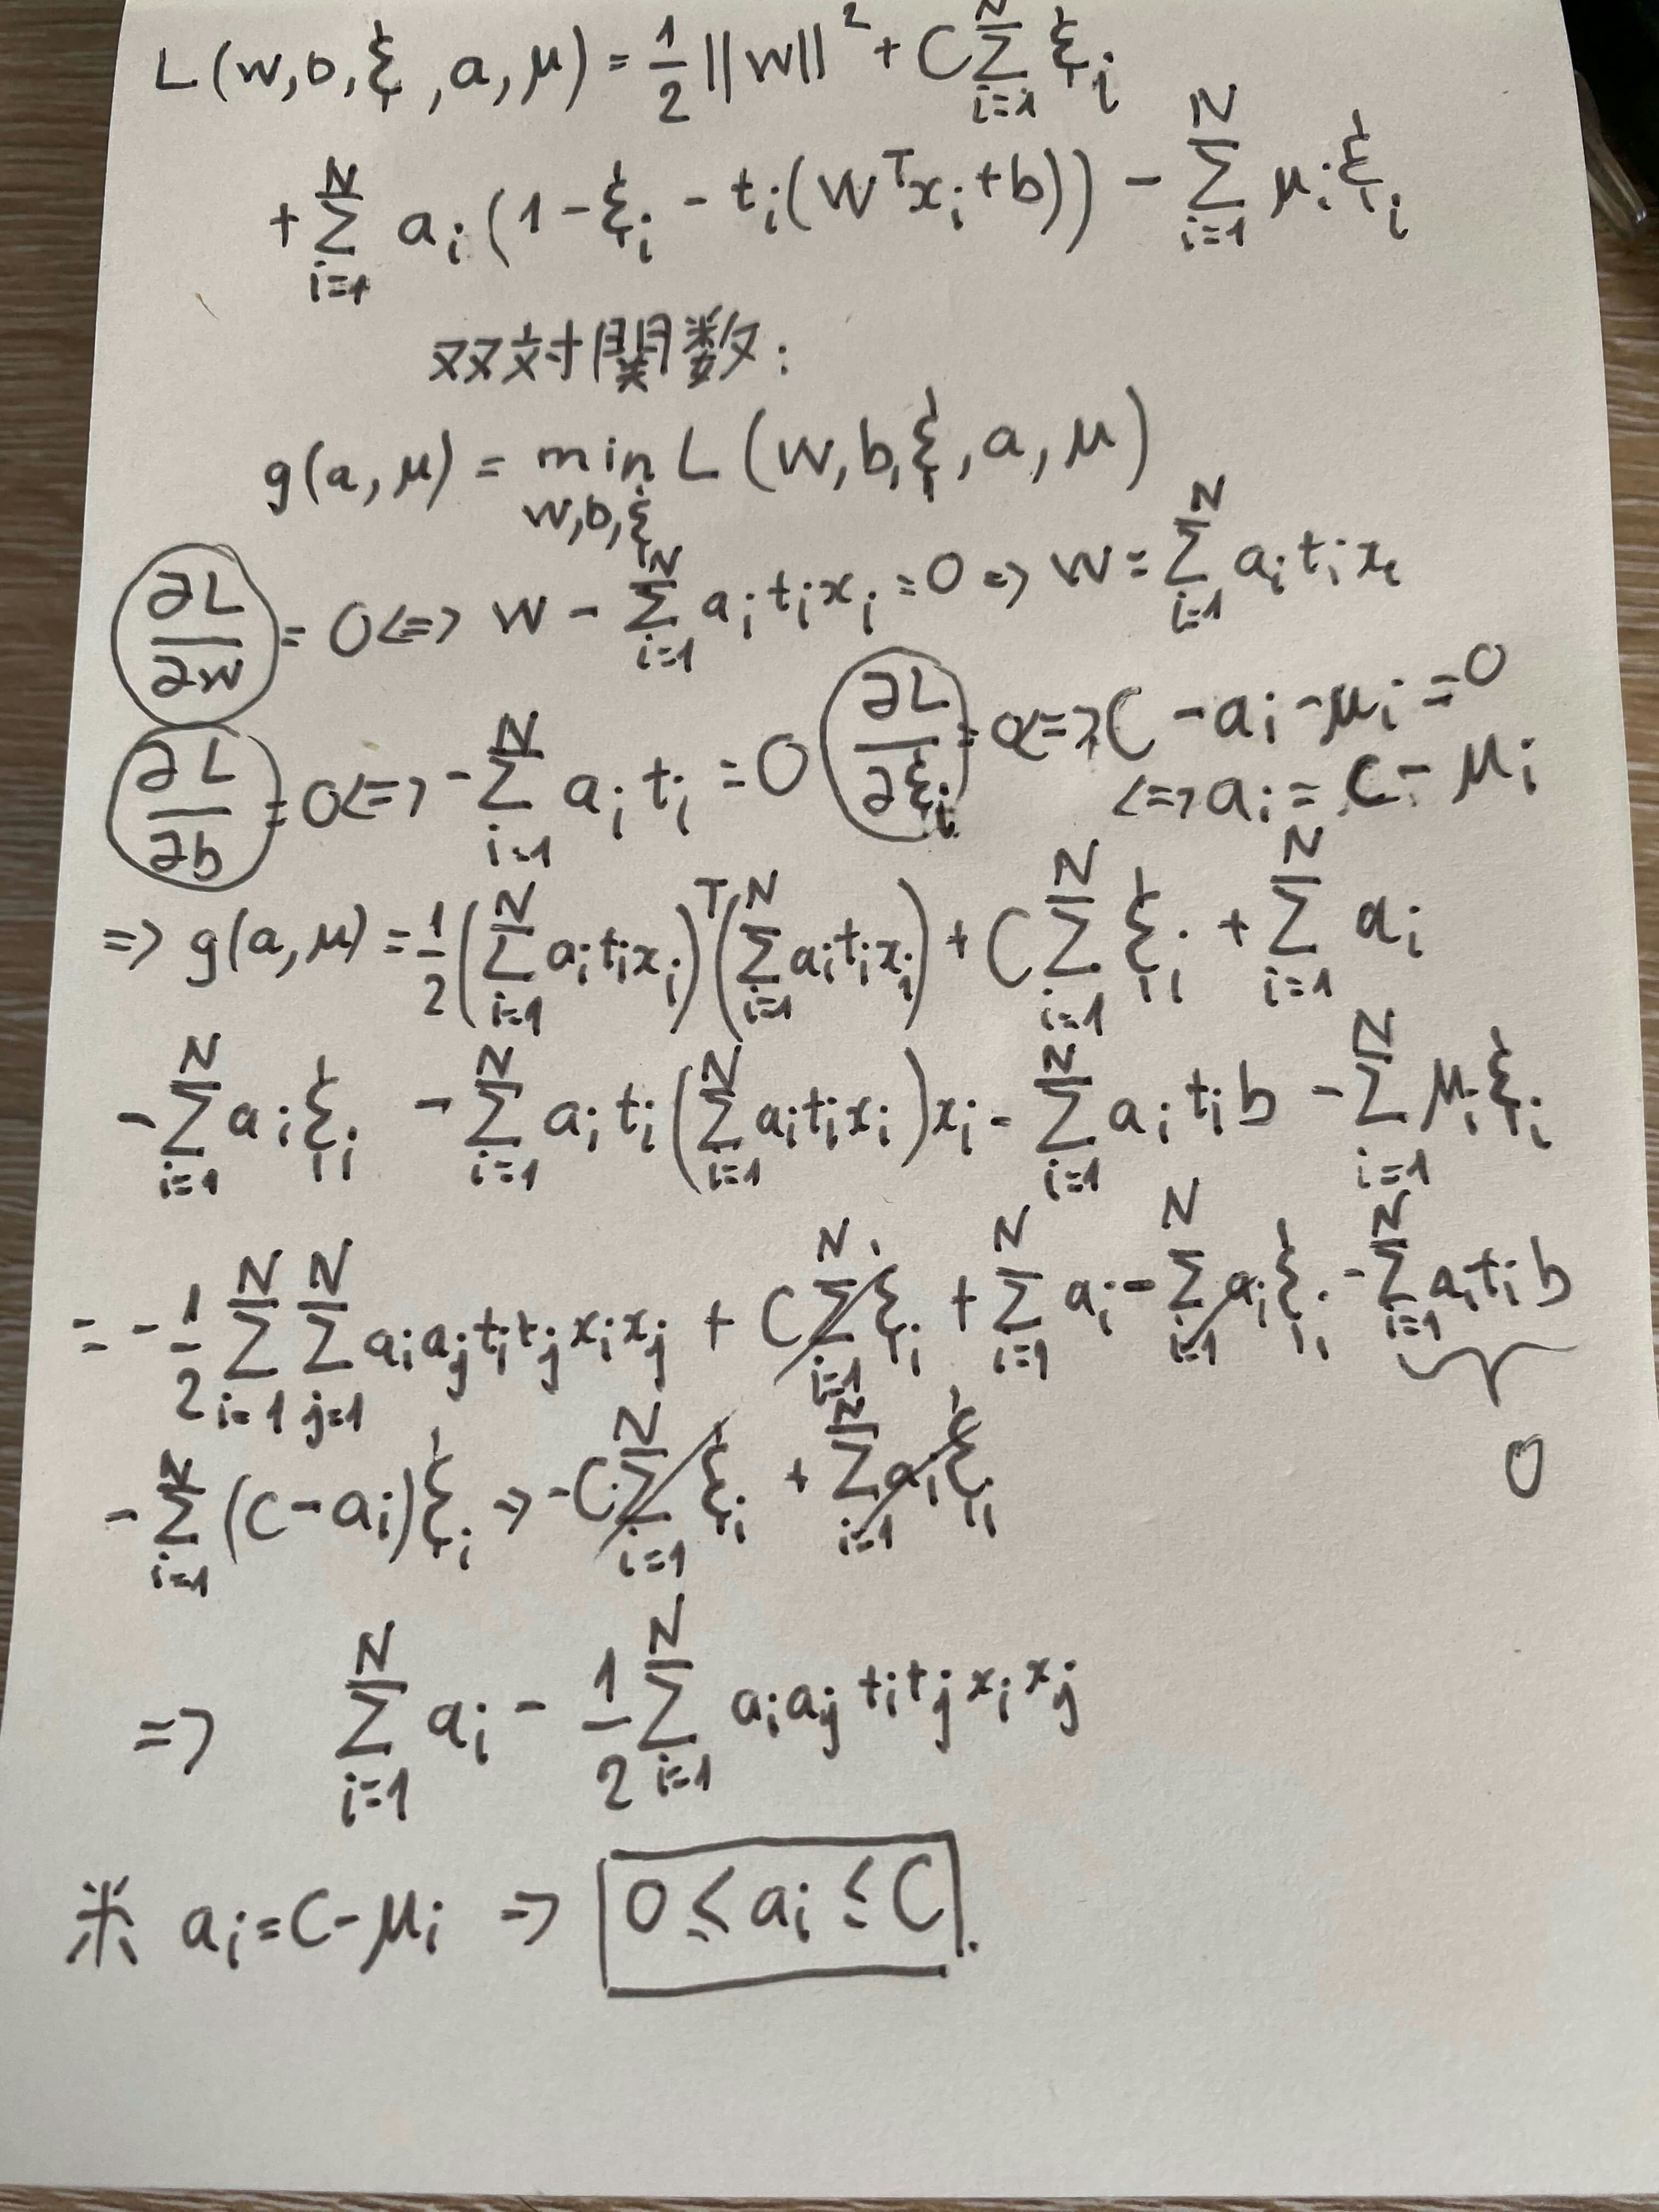 L(w,b,ξ,a,μ) = 1/2 ||w||² + C∑_{i=1}^{N} ξ_i
+ ∑_{i=1}^{N} a_i(1 - ξ_i - t_i(w^T x_i + b)) - ∑_{i=1}^{N} μ_i ξ_i
双対関数:
g(a,μ) = min_{w,b,ξ} L(w,b,ξ,a,μ)
∂L/∂w = 0 <=> w - ∑_{i=1}^{N} a_i t_i x_i = 0 => w = ∑_{i=1}^{N} a_i t_i x_i
∂L/∂b = 0 <=> - ∑_{i=1}^{N} a_i t_i = 0 ∂L/∂ξ_i = 0 <=> C - a_i - μ_i = 0
<=> a_i = C - μ_i
=> g(a,μ) = 1/2 (∑_{i=1}^{N} a_i t_i x_i)^T (∑_{i=1}^{N} a_i t_i x_i) + C∑_{i=1}^{N} ξ_i + ∑_{i=1}^{N} a_i
- ∑_{i=1}^{N} a_i ξ_i - ∑_{i=1}^{N} a_i t_i (∑_{i=1}^{N} a_i t_i x_i) x_i - ∑_{i=1}^{N} a_i t_i b - ∑_{i=1}^{N} μ_i ξ_i
= - 1/2 ∑_{i=1}^{N} ∑_{j=1}^{N} a_i a_j t_i t_j x_i x_j + C∑_{i=1}^{N} ξ_i + ∑_{i=1}^{N} a_i - ∑_{i=1}^{N} a_i ξ_i - ∑_{i=1}^{N} a_i t_i b
0
- ∑_{i=1}^{N} (C - a_i) ξ_i => - C∑_{i=1}^{N} ξ_i + ∑_{i=1}^{N} a_i ξ_i
=> ∑_{i=1}^{N} a_i - 1/2 ∑_{i=1}^{N} a_i a_j t_i t_j x_i x_j
※ a_i = C - μ_i => 0 ≤ a_i ≤ C.